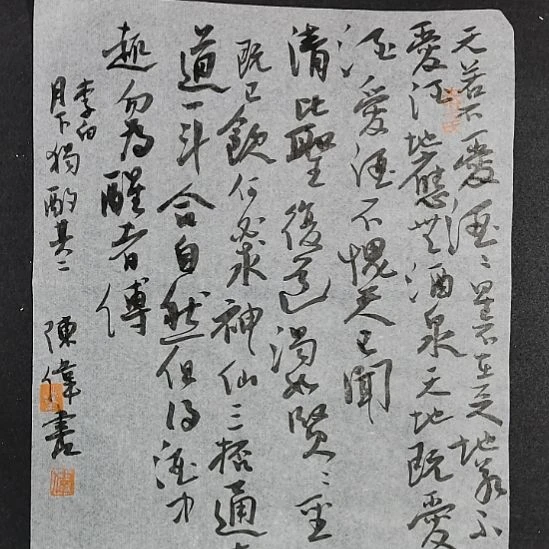 天若不愛酒〻星不在天地若不
愛酒地應無酒泉天地既愛
酒愛酒不愧天已聞
清比聖復道濁如賢〻聖
既已飲何必求神仙三桮通大
道一斗合自然但得酒中
趣勿為醒者傳
李白
月下獨酌其二
陳偉書